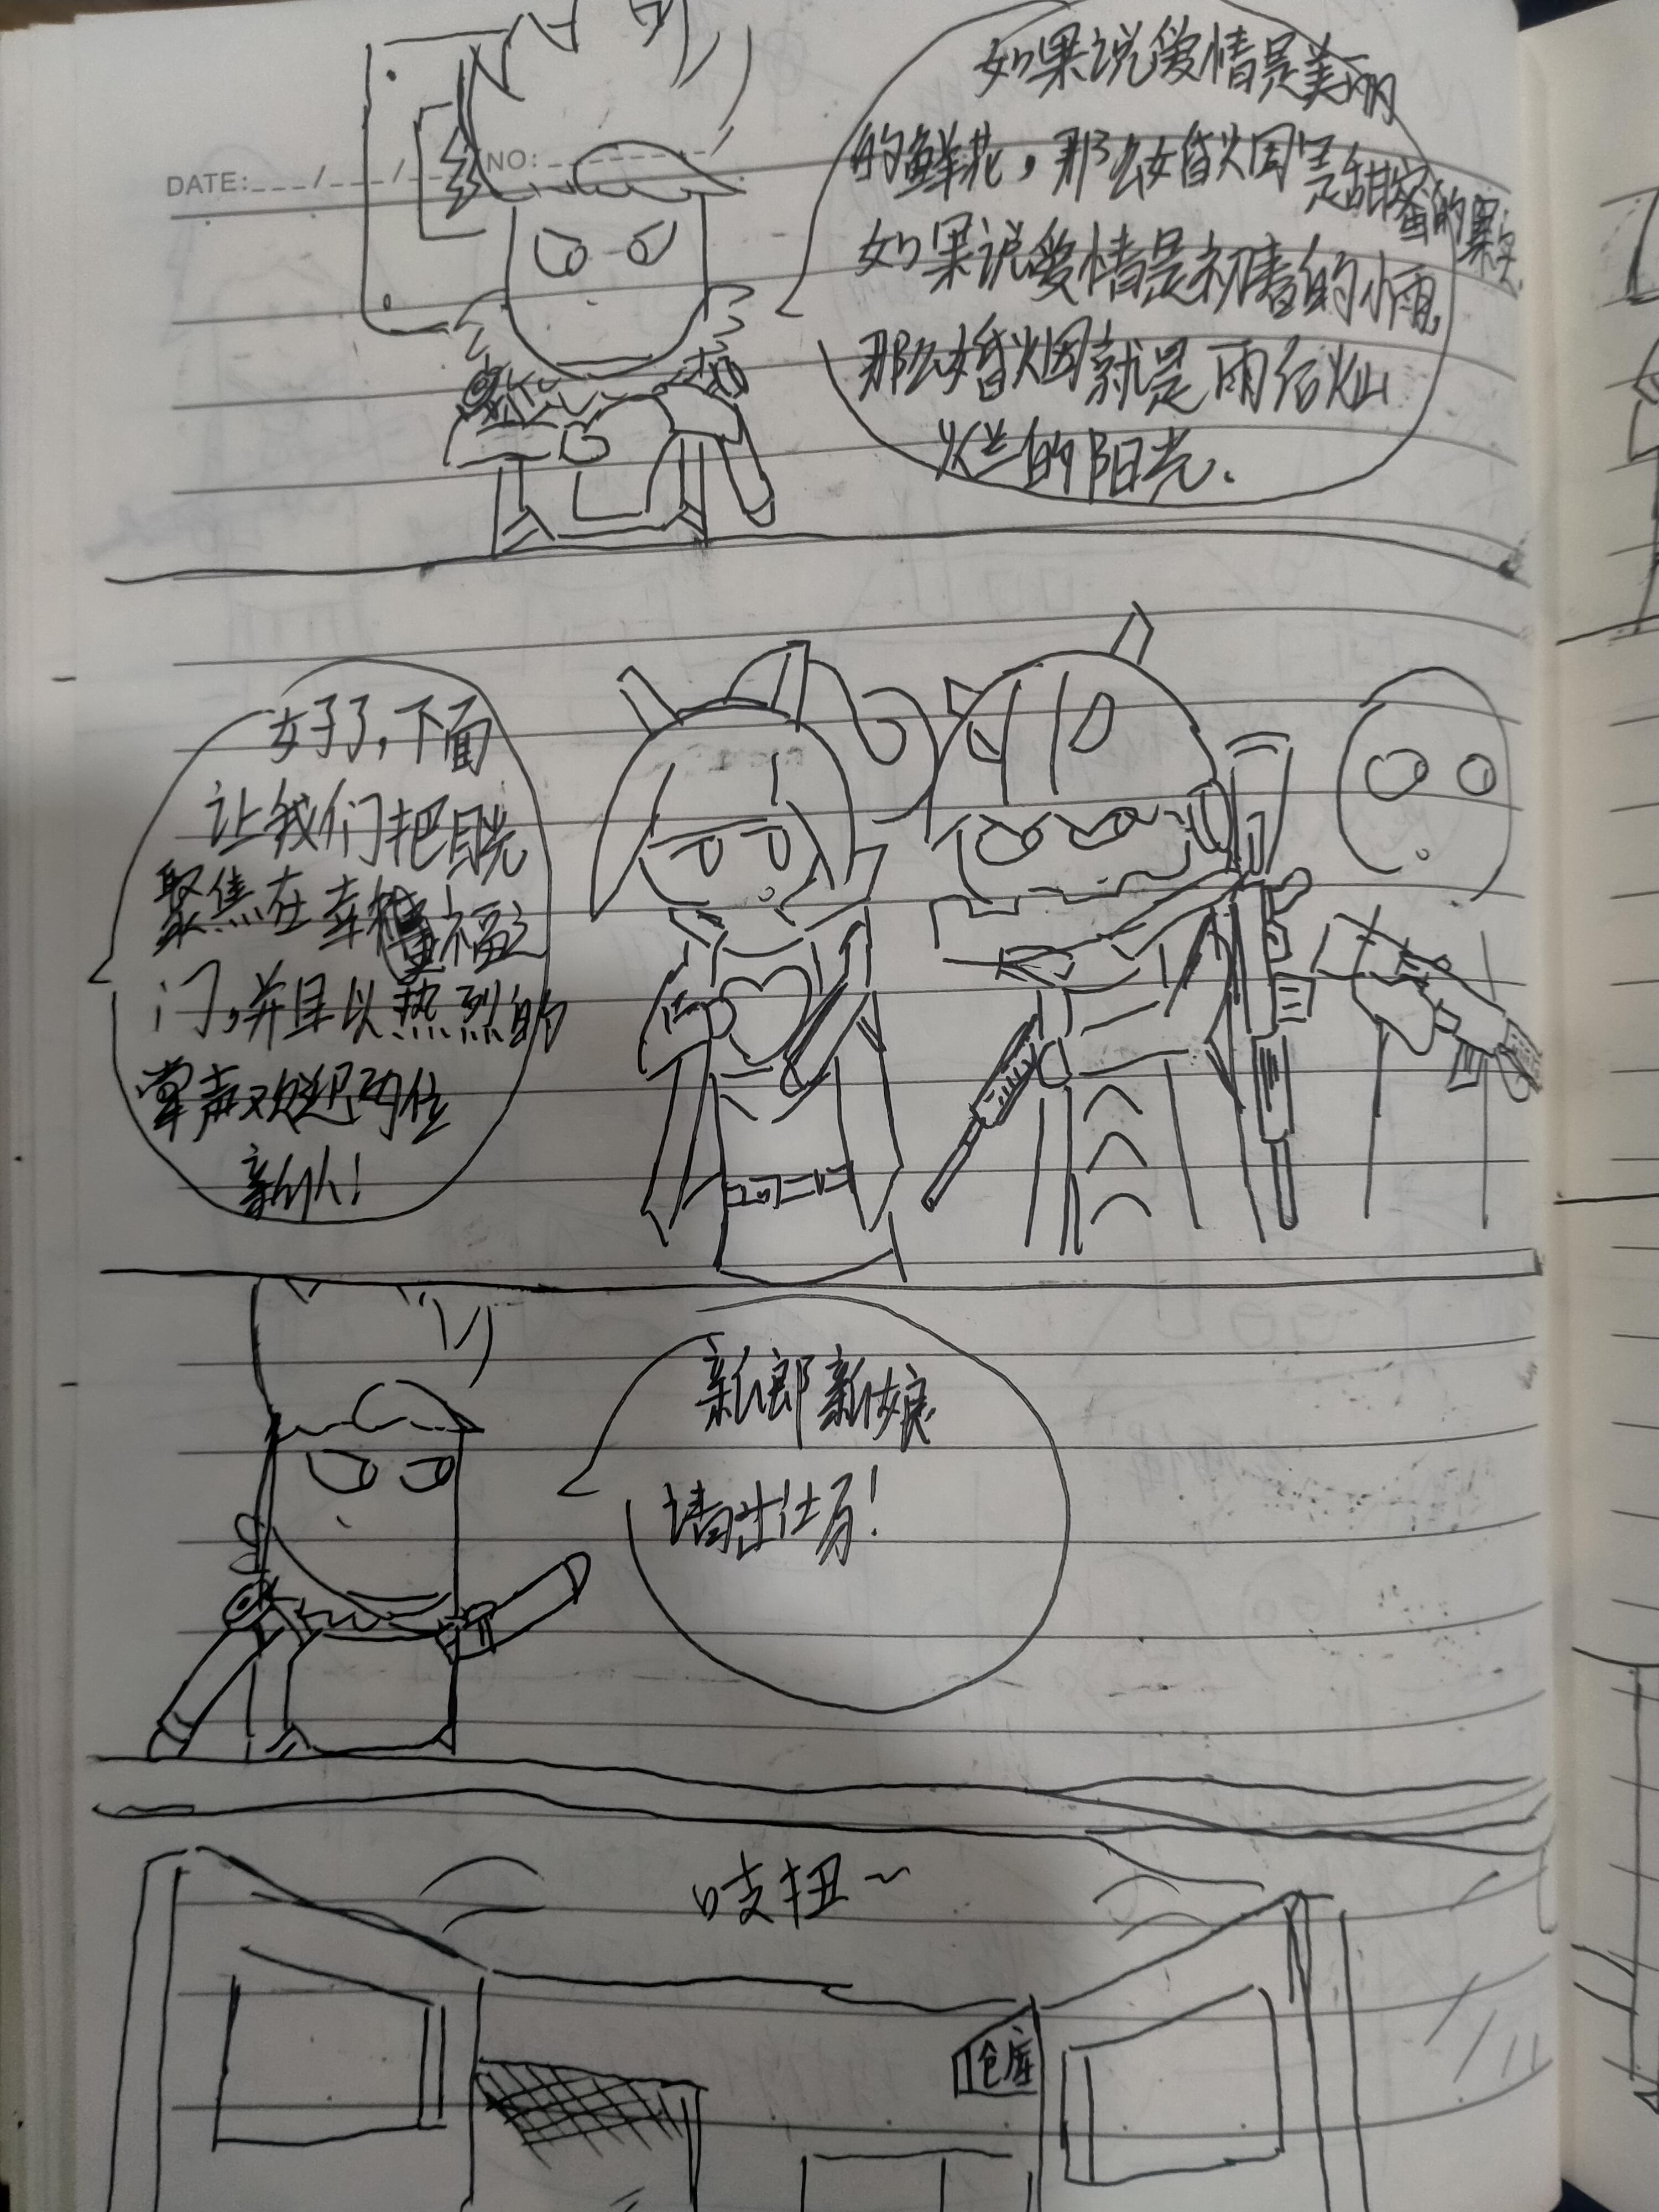 DATE:___/___/___ NO:___
如果说爱情是美丽
的鲜花，那么婚烟是甜蜜的果实
如果说爱情是初春的小雨，
那么婚烟就是雨后灿
烂的阳光.
好了，下面
让我们把目光
聚焦在幸福之
门，并且以热烈的
掌声欢迎两位
新人！
新郎新娘
请出仕场！
吱扭~
仓库